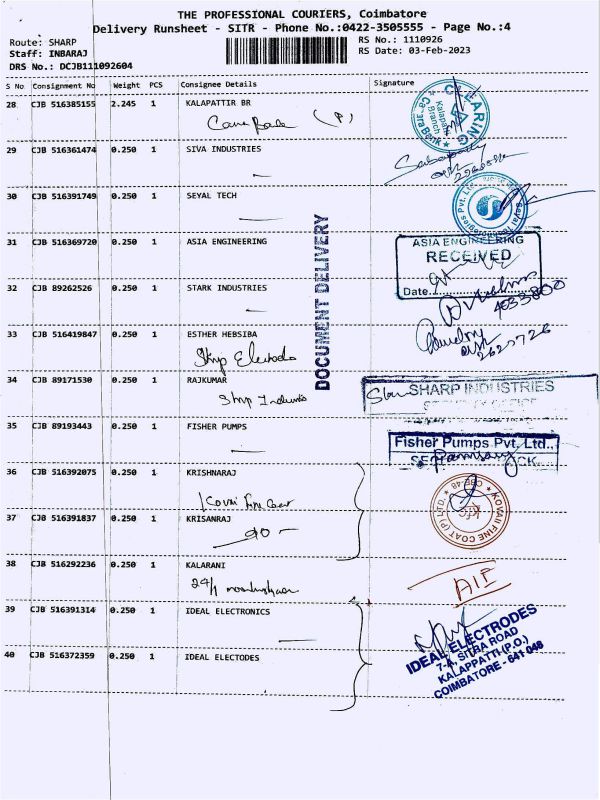 THE PROFESSIONAL COURIERS, Coimbatore
Delivery Runsheet - SITR - Phone No.:0422-3505555 - Page No.:4
Route: SHARP
RS No.: 1110926
Staff: INBARAJ
RS Date: 03-Feb-2023
DRS No.: DCJB111092604
S No Consignment No Weight PCS Consignee Details Signature
28 CJB 516385155 2.245 1 KALAPATTIR BR
(P)
CLEARING
Kalapatti
Branch
Canara Bank
29 CJB 516361474 0.250 1 SIVA INDUSTRIES
30 CJB 516391749 0.250 1 SEYAL TECH
Pvt. Ltd.
31 CJB 516369720 0.250 1 ASIA ENGINEERING
ASIA ENGINEERING
RECEIVED
Date
DOCUMENT DELIVERY
32 CJB 89262526 0.250 1 STARK INDUSTRIES
33 CJB 516419847 0.250 1 ESTHER HEBSIBA
34 CJB 89171530 0.250 1 RAJKUMAR
SHARP INDUSTRIES
35 CJB 89193443 0.250 1 FISHER PUMPS
Fisher Pumps Pvt. Ltd.,
36 CJB 516392075 0.250 1 KRISHNARAJ
KOVAI FINE COAT (P) LTD.
kfc
37 CJB 516391837 0.250 1 KRISANRAJ
38 CJB 516292236 0.250 1 KALARANI
39 CJB 516391314 0.250 1 IDEAL ELECTRONICS
40 CJB 516372359 0.250 1 IDEAL ELECTODES
IDEAL ELECTRODES
7-A, SITRA ROAD
KALAPPATTI (P.O.)
COIMBATORE - 641 048